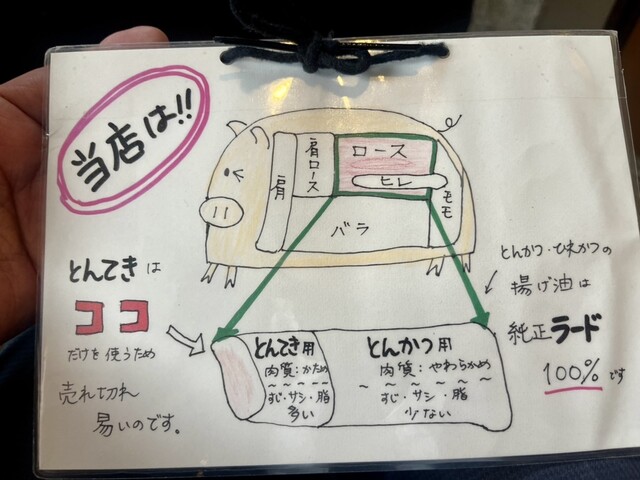 当店は!!
肩
肩ロース
ロース
ヒレ
バラ
モモ
とんてきは
ココ
だけを使うため
売れ切れ
易いのです。
とんてき用
肉質:かため
すじ・サシ・脂
多い
とんかつ用
肉質:やわらかめ
すじ・サシ・脂
少ない
揚げ油は
純正ラード
100%です